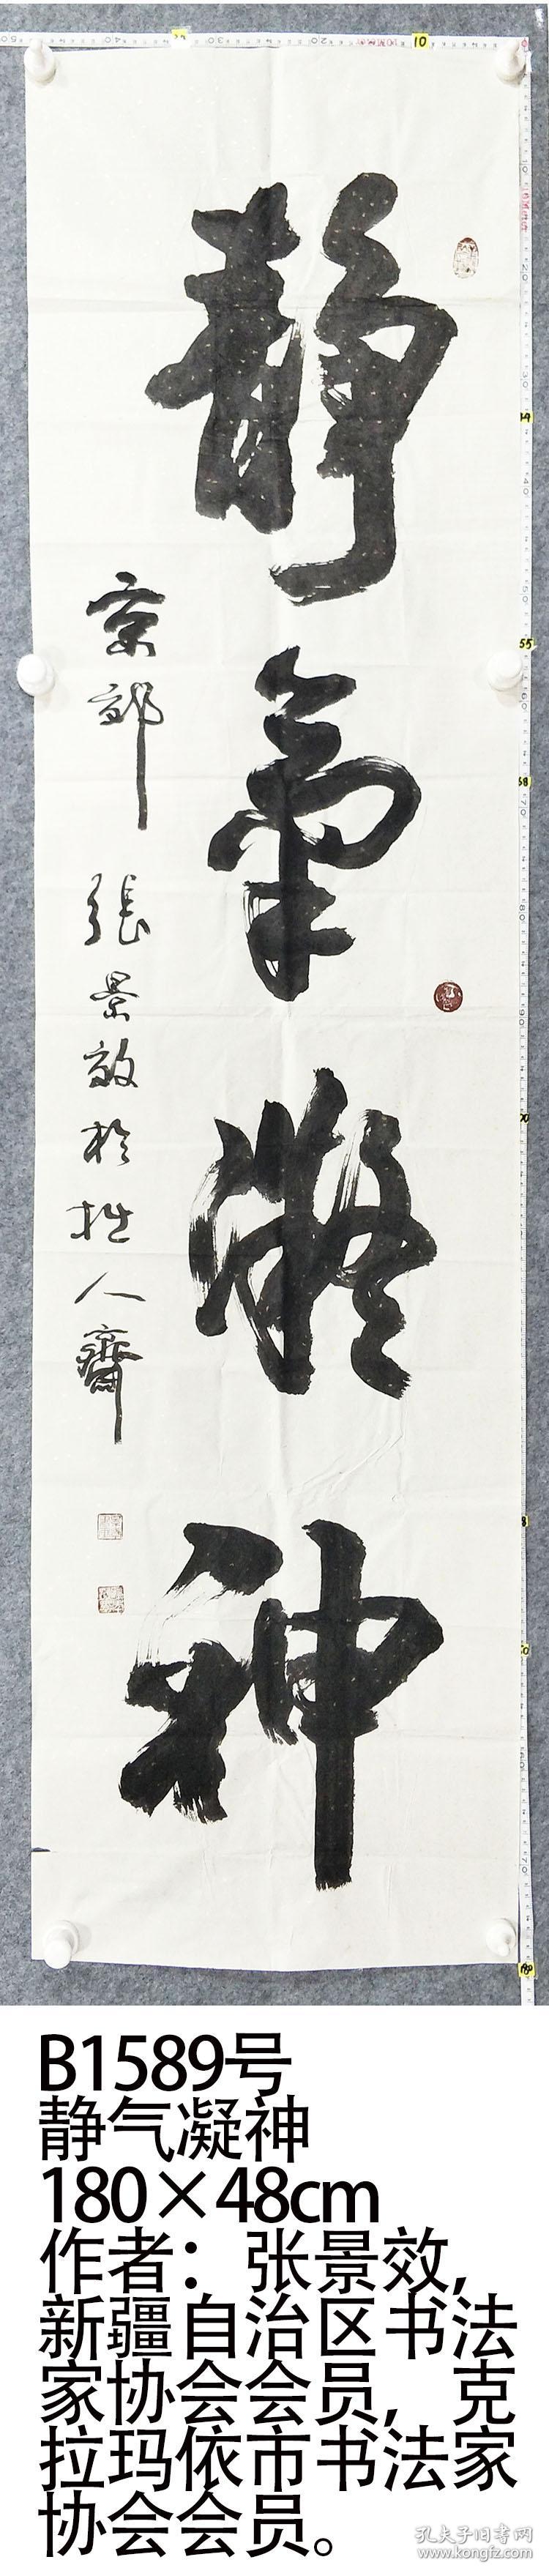 靜氣凝神
京郊 張景效於拙人齋
B1589号
静气凝神
180×48cm
作者：张景效，
新疆自治区书法
家协会会员，克
拉玛依市书法家
协会会员。
孔夫子旧书网
www.kongfz.com